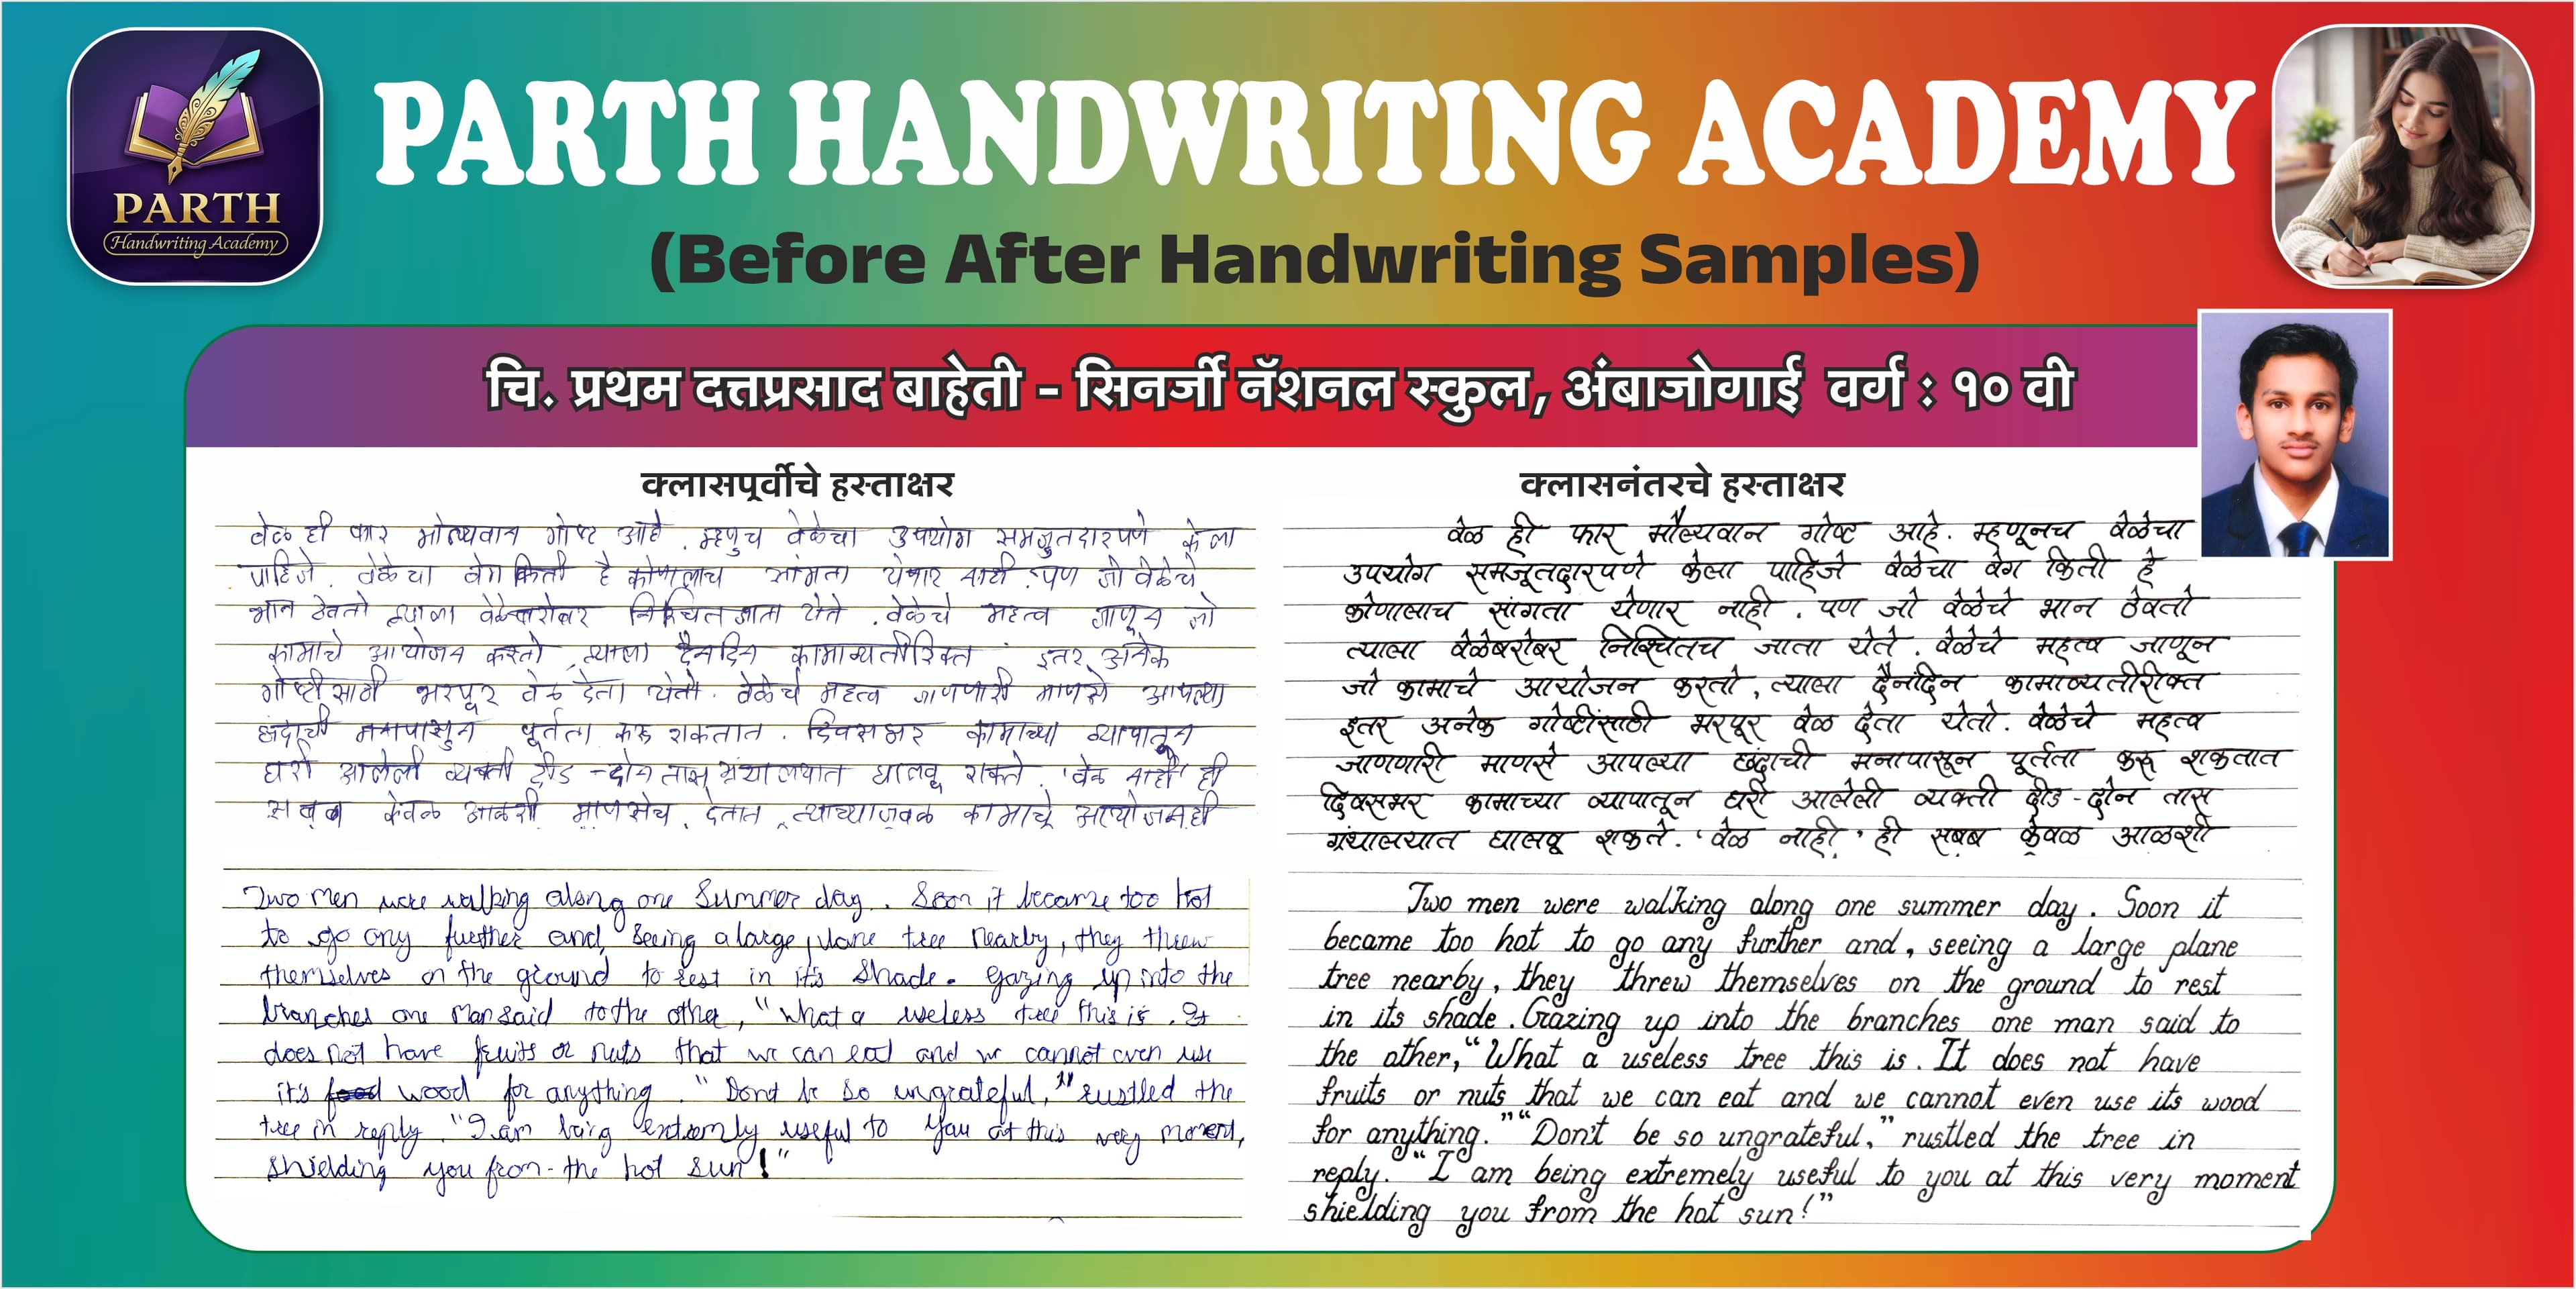 PARTH HANDWRITING ACADEMY
PARTH
Handwriting Academy
(Before After Handwriting Samples)
चि. प्रथम दत्तप्रसाद बाहेती - सिनर्जी नॅशनल स्कुल, अंबाजोगाई वर्ग : १० वी
क्लासपूर्वीचे हस्ताक्षर
वेळ ही फार मोल्यवान गोष्ट आहे. म्हणुच वेळेचा उपयोग समजुतदारपणे केला
पाहिजे. वेळेचा वेग किती है कोणालाच सांगता येणार नाही. पण जो वेळेचे
भान ठेवतो त्याला वेळेबरोबर निश्चित जाता येते. वेळेचे महत्व जाणून जो
कामाचे आयोजन करतो, त्याला दैनंदिन कामाव्यतीरिक्त इतर अनेक
गोष्टीसाठी भरपूर वेळ देता येतो. वेळेचे महत्व जाणणारी माणसे आपल्या
छंदाची मनापासुन पूर्तता करू शकतात. दिवसभर कामाच्या व्यापातून
घरी आलेली व्यक्ती दीड - दोन तास ग्रंथालयात घालवू शकते. 'वेळ नाही' ही
सबब केवळ आळशी माणसेच देतात, त्याच्याजवळ कामाचे आयोजनही
Two men were walking along one Summer day. Soon it became too hot
to go any further and, Seeing a large plane tree nearby, they threw
themselves on the ground to rest in it's Shade. Gazing up into the
branches one man said to the other, "What a useless tree this is. It
does not have fruits or nuts that we can eat and we cannot even use
it's wood for anything. "Dont be so ungrateful," rustled the
tree in reply. "I am being extremly useful to you at this very moment,
shielding you from - the hot sun!"
क्लासनंतरचे हस्ताक्षर
वेळ ही फार मौल्यवान गोष्ट आहे. म्हणूनच वेळेचा
उपयोग समजूतदारपणे केला पाहिजे वेळेचा वेग किती हे
कोणालाच सांगता येणार नाही. पण जो वेळेचे भान ठेवतो
त्याला वेळेबरोबर निश्चितच जाता येते. वेळेचे महत्व जाणून
जो कामाचे आयोजन करतो, त्याला दैनंदिन कामाव्यतीरिक्त
इतर अनेक गोष्टींसाठी भरपूर वेळ देता येतो. वेळेचे महत्व
जाणणारी माणसे आपल्या छंदाची मनापासून पूर्तता करू शकतात
दिवसभर कामाच्या व्यापातून घरी आलेली व्यक्ती दीड - दोन तास
ग्रंथालयात घालवू शकते. 'वेळ नाही' ही सबब केवळ आळशी
Two men were walking along one summer day. Soon it
became too hot to go any further and, seeing a large plane
tree nearby, they threw themselves on the ground to rest
in its shade. Gazing up into the branches one man said to
the other, "What a useless tree this is. It does not have
fruits or nuts that we can eat and we cannot even use its wood
for anything." "Don't be so ungrateful," rustled the tree in
reply. "I am being extremely useful to you at this very moment
shielding you from the hot sun!"